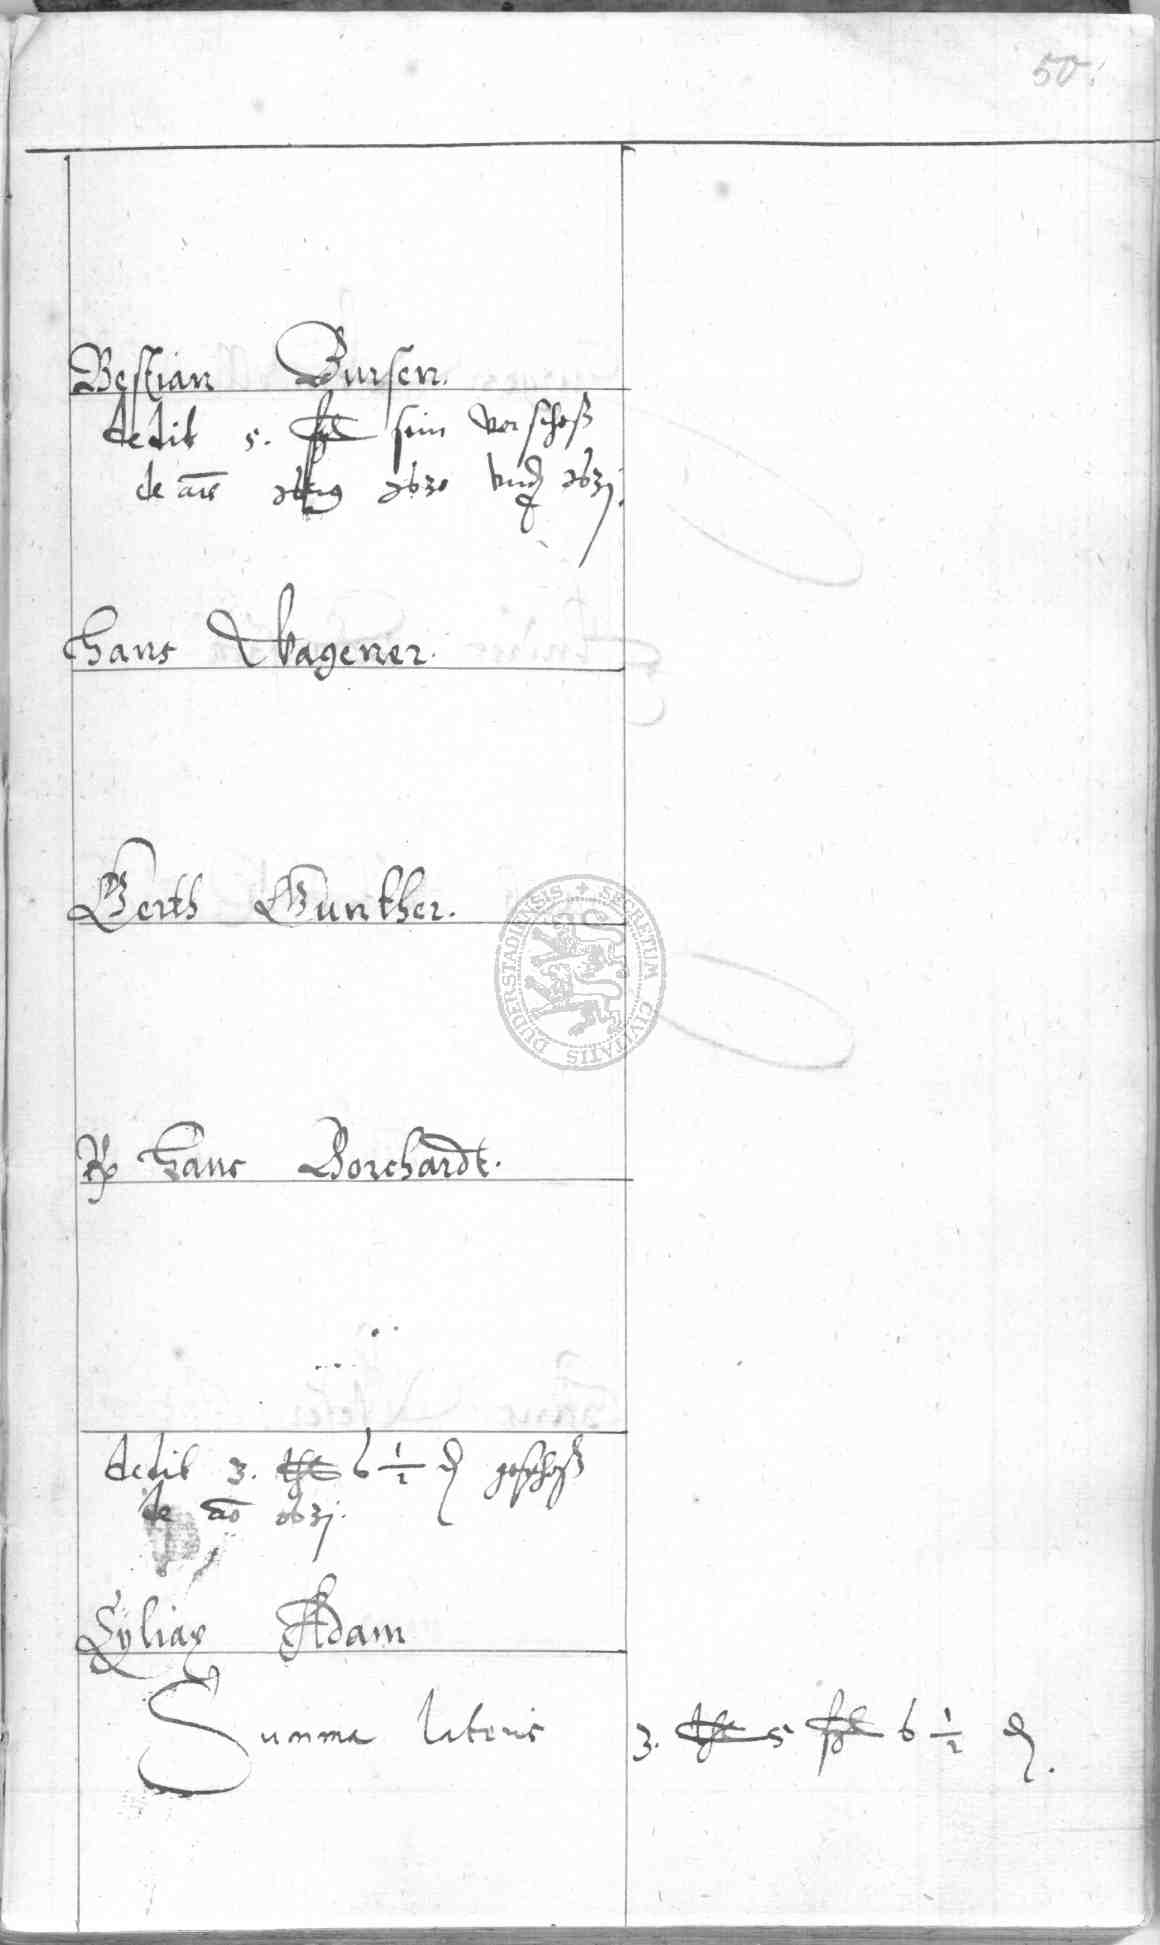 50.
Bestian Bursen.
dedit 5. ßl sein vorschoß
de aō 1629 1630 vnd 1631.
Hans Wagener.
Berth Gunther.
Hans Borchardt.
dedit 3. 6 1/2 ₰ geschoß
de aō 1631.
Cyliax Adam
Summa lateris 3. 5 ßl 6 1/2 ₰.
SECRETUM CIVITATIS DUDERSTADIENSIS